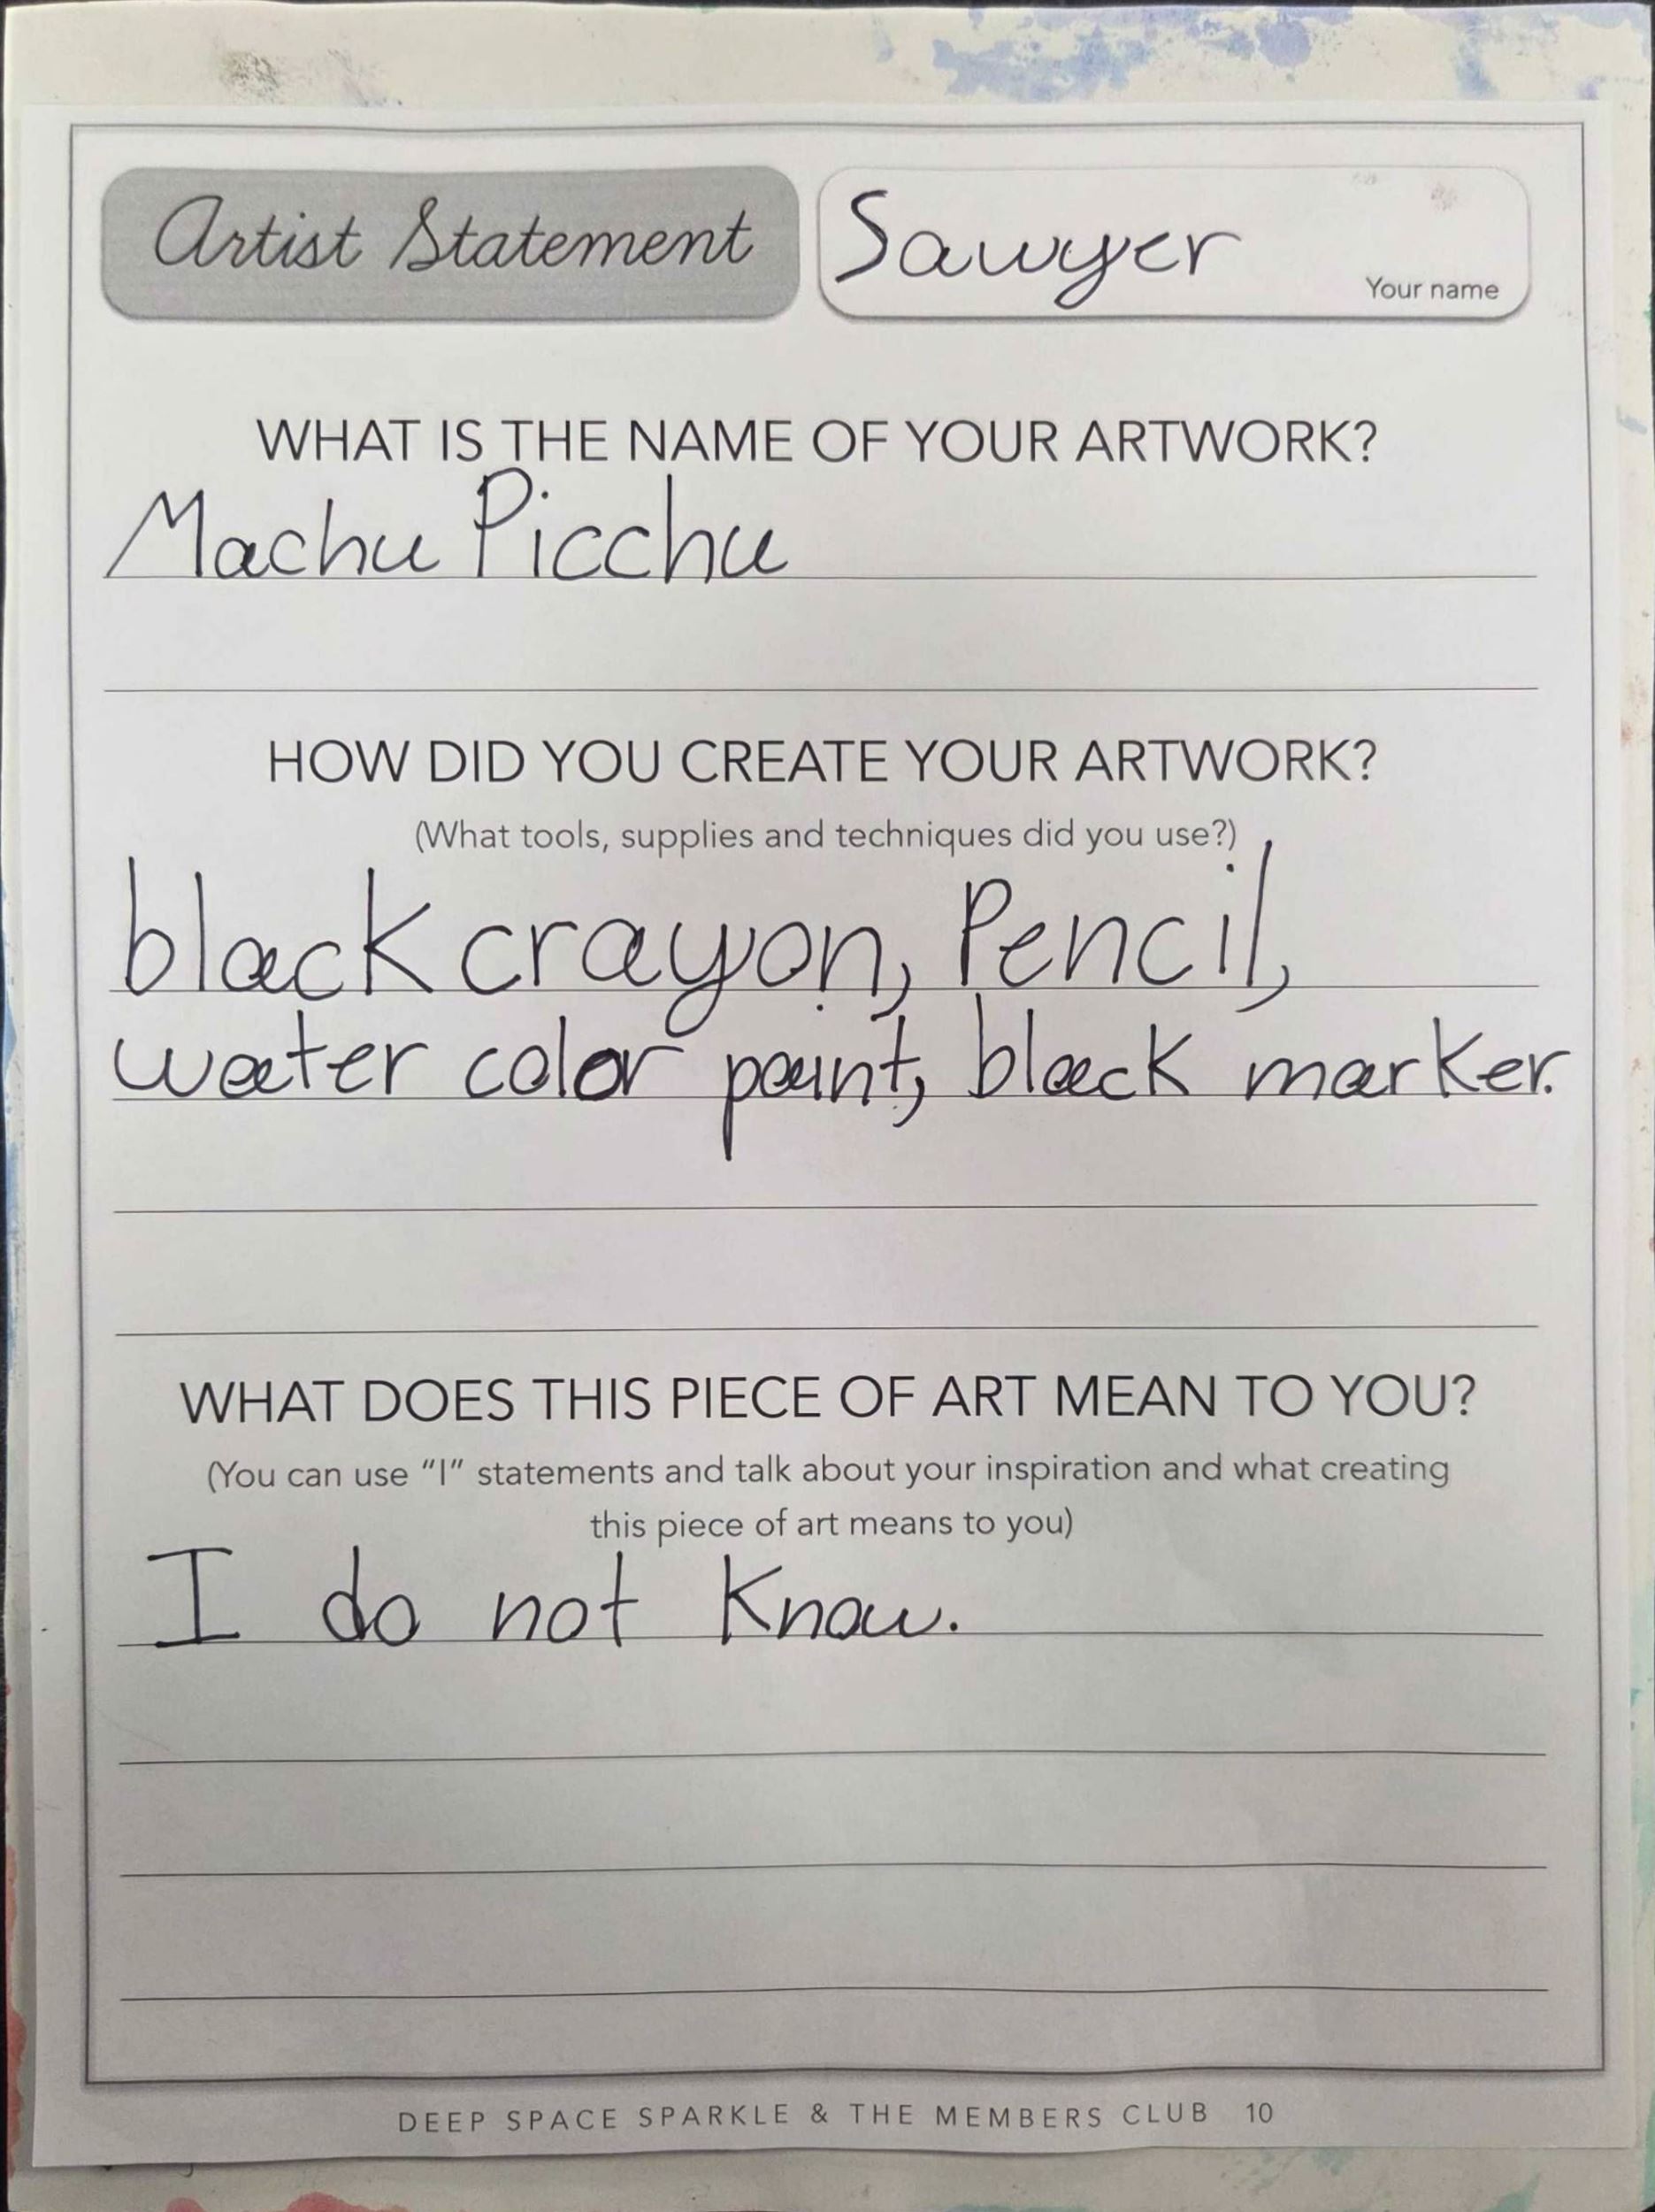 Artist Statement
Sawyer
Your name
WHAT IS THE NAME OF YOUR ARTWORK?
Machu Picchu
HOW DID YOU CREATE YOUR ARTWORK?
(What tools, supplies and techniques did you use?)
black crayon, Pencil,
water color paint, black marker.
WHAT DOES THIS PIECE OF ART MEAN TO YOU?
(You can use “I” statements and talk about your inspiration and what creating
this piece of art means to you)
I do not Know.
DEEP SPACE SPARKLE & THE MEMBERS CLUB 10